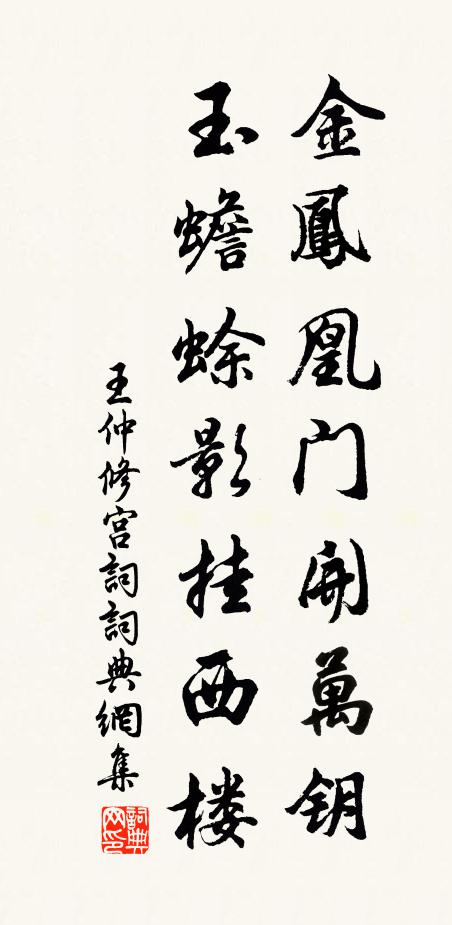 金鳳凰門開萬钥
玉蟾蜍影挂西楼
王仲修宫詞詞典網集
詞典
网印